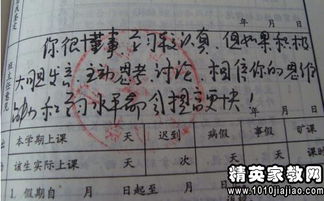 年 月 日
你很懂事,学习较认真,但如果积极
大胆发言,主动思考、讨论,相信你的思维
能力和学习水平会提高更快!
年 月 日
本学期上课 天 迟到 病假 事假 旷课
该生实际上课 天 次 天 天 课时
1. 假期自 月 日起至 月 日
精英家教网
www.1010jiajiao.com